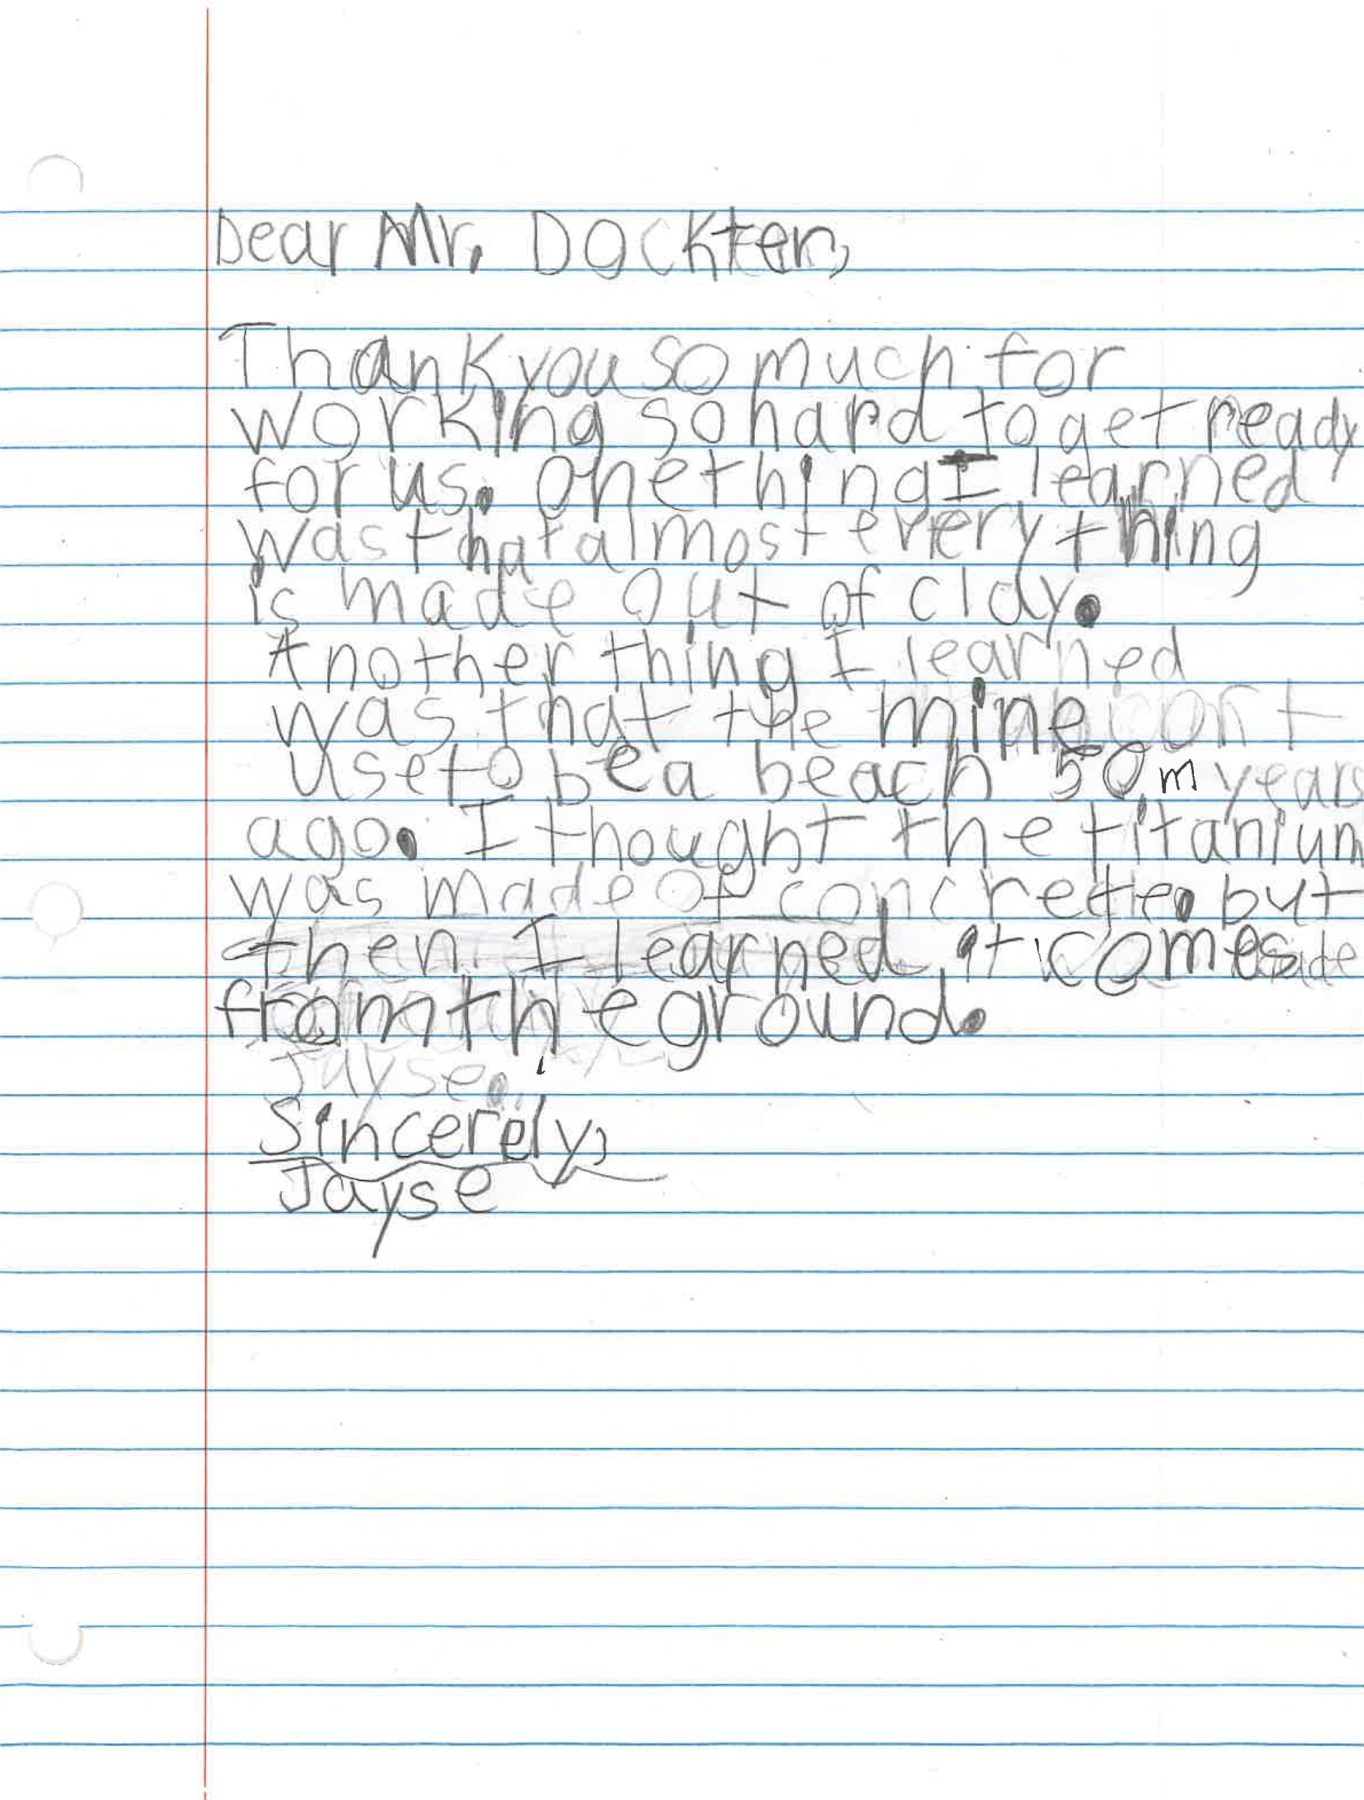 Dear Mr. Dockter,
Thank you so much for
working so hard to get ready
for us. One thing I learned
was that almost everything
is made out of clay.
Another thing I learned
was that the mine
use to be a beach 50 m years
ago. I thought the titanium
was made of concrete. but
then I learned it comes
from the ground.
Jayse.
Sincerely,
Jayse